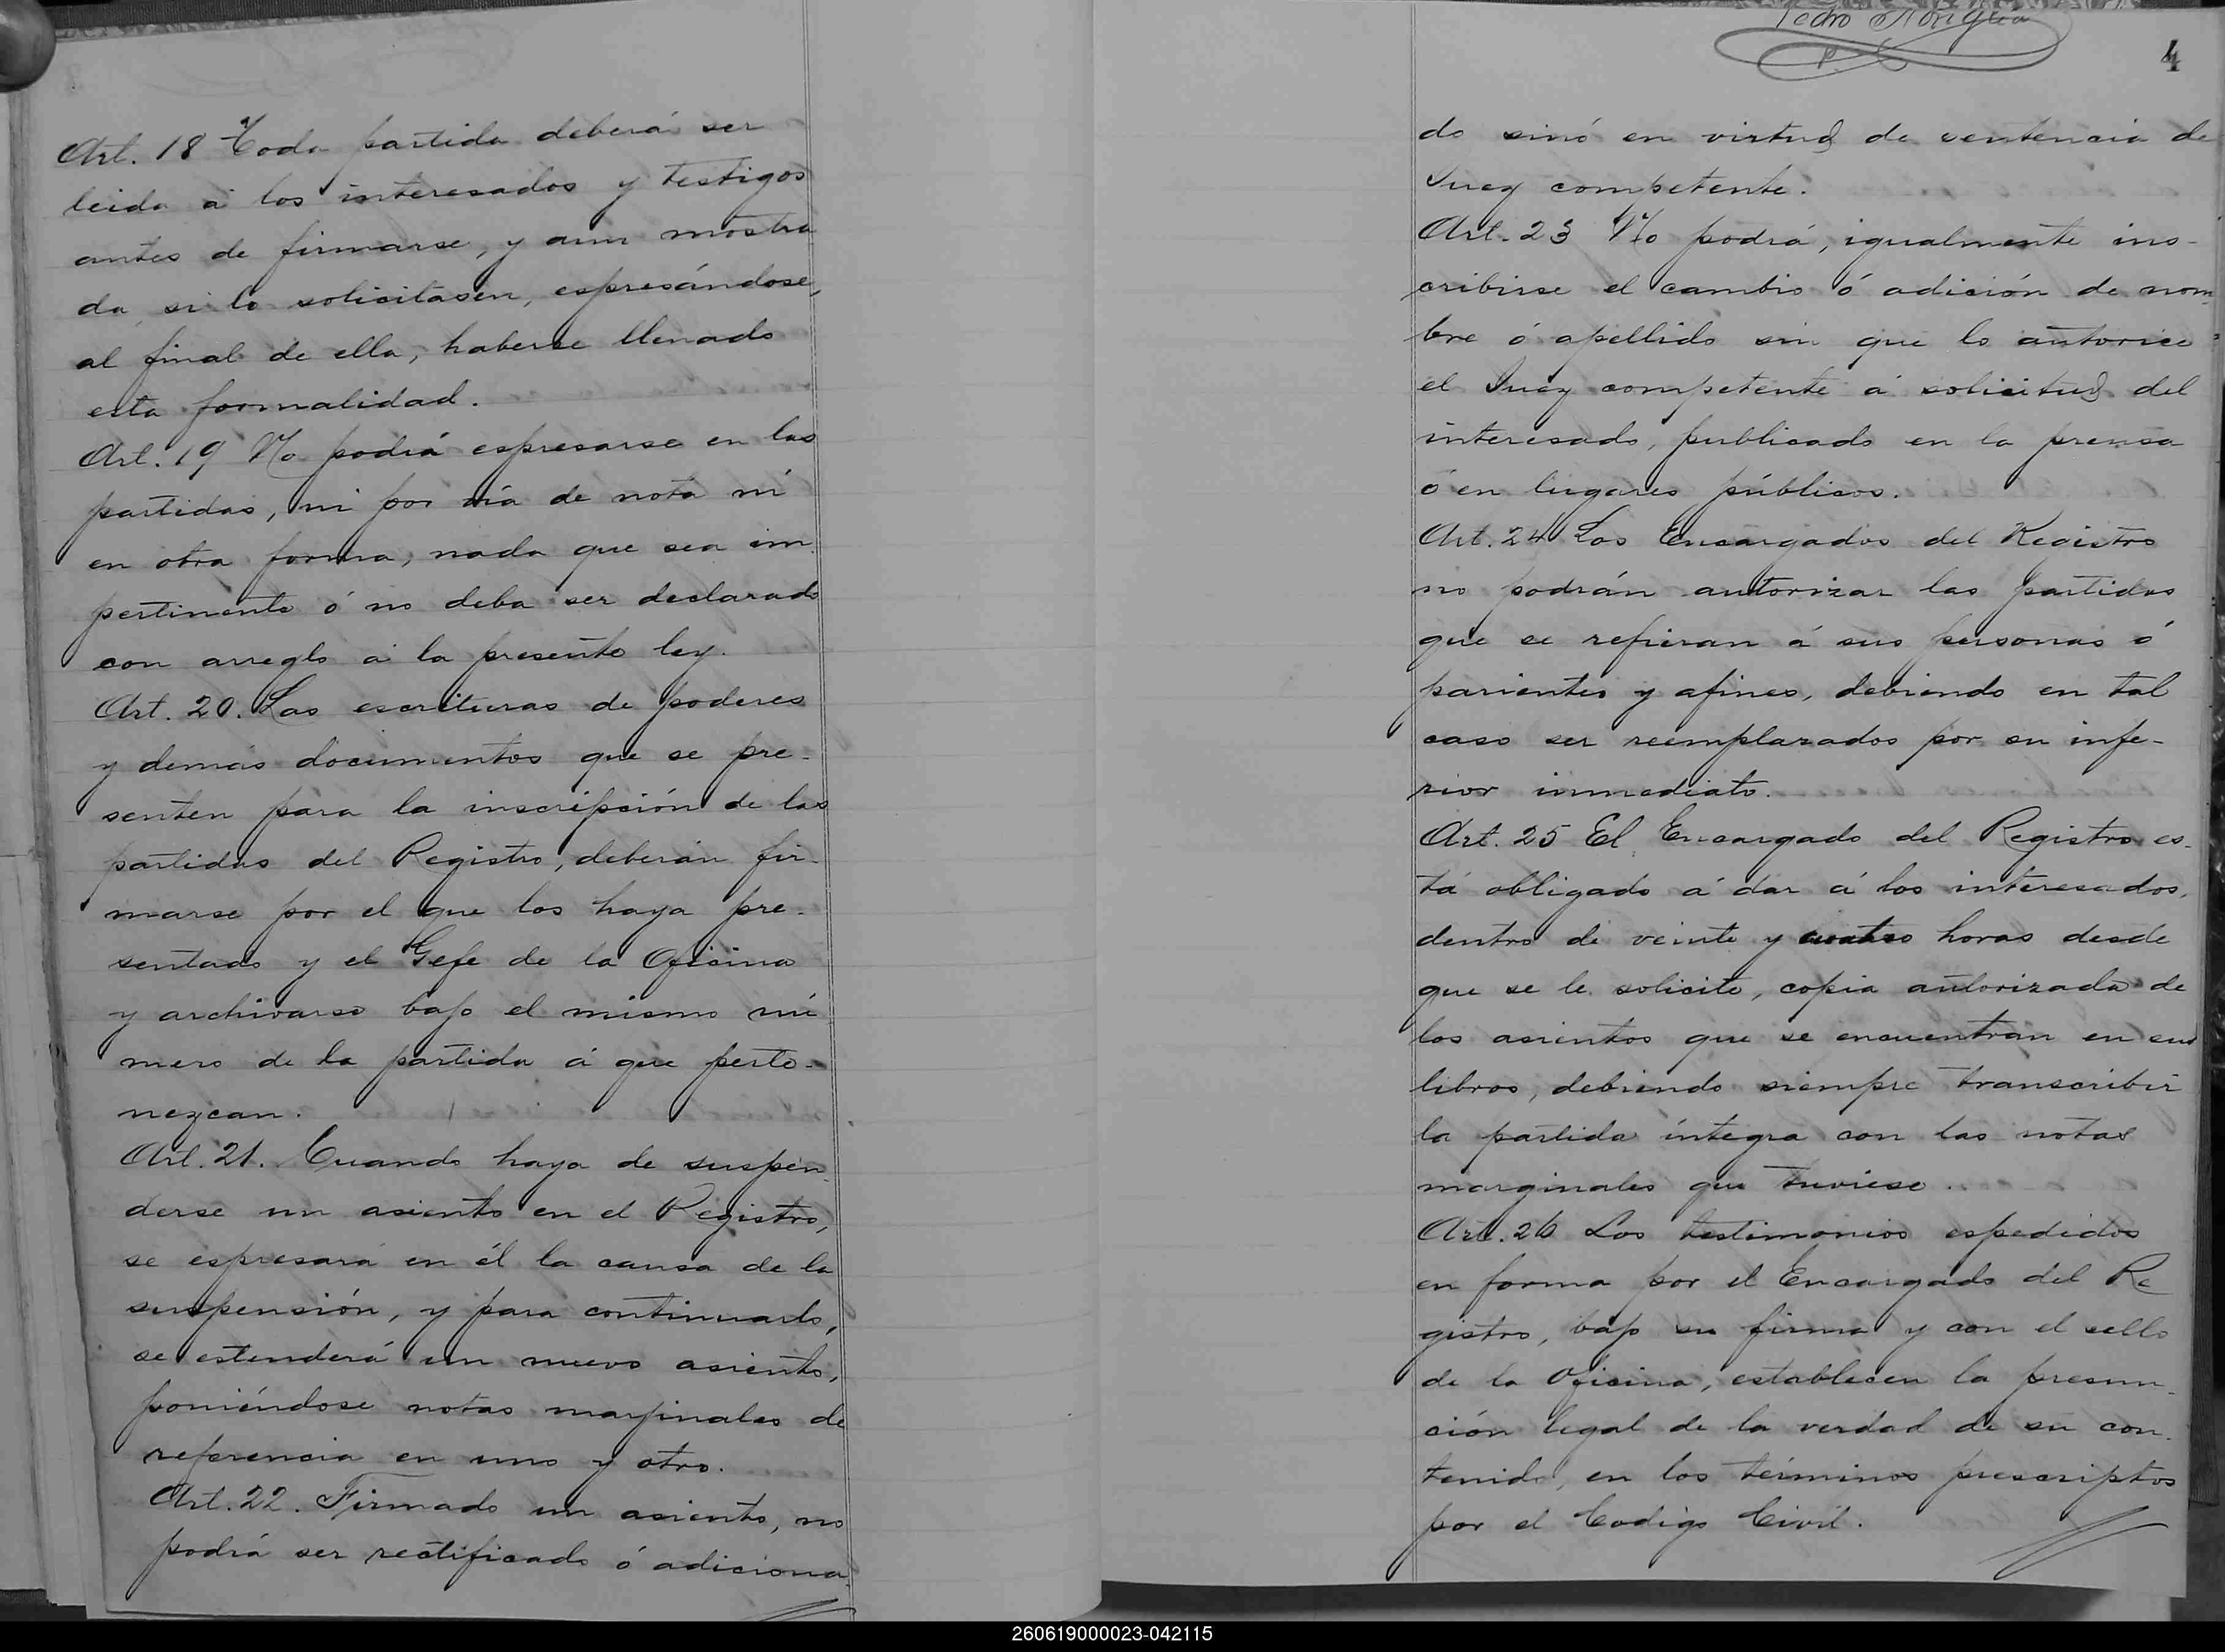 Art. 18 Toda partida deberá ser
leida á los interesados y testigos
antes de firmarse, y aun mostra
da, si lo solicitasen, espresándose,
al final de ella, haberse llenado
esta formalidad.
Art. 19 No podrá espresarse en las
partidas, ni por vía de nota ni
en otra forma, nada que sea im
pertinente ó no deba ser declarado
con arreglo á la presente ley.
Art. 20. Las escrituras de poderes
y demás documentos que se pre-
senten para la inscripción de las
partidas del Registro, deberán fir-
marse por el que los haya pre-
sentado y el Gefe de la Oficina
y archivarse bajo el mismo nú
mero de la partida á que perte-
nezcan.
Art. 21. Cuando haya de suspen-
derse un asiento en el Registro,
se espresará en él la causa de la
suspensión, y para continuarlo,
se estenderá un nuevo asiento,
poniéndose notas marginales de
referencia en uno y otro.
Art. 22. Firmado un asiento, no
podrá ser rectificado ó adiciona-
Pedro
4
do sinó en virtud de sentencia de
Juez competente.
Art. 23 No podrá, igualmente ins-
cribirse el cambio ó adición de nom
bre ó apellido sin que lo autorice
el Juez competente á solicitud del
interesado, publicado en la prensa
ó en lugares públicos.
Art. 24 Los Encargados del Registro
no podrán autorizar las partidas
que se refieran á sus personas ó
parientes y afines, debiendo en tal
caso ser reemplazados por su infe-
rior inmediato.
Art. 25 El Encargado del Registro es-
tá obligado á dar á los interesados,
dentro de veinte y cuatro horas desde
que se le solicite, copia autorizada de
los asientos que se encuentran en sus
libros, debiendo siempre transcribir
la partida íntegra con las notas
marginales que tuviese.
Art. 26 Los testimonios espedidos
en forma por el Encargado del Re
gistro, bajo su firma y con el sello
de la Oficina, establecen la presun-
ción legal de la verdad de su con-
tenido, en los términos prescriptos
por el Codigo Civil.
260619000023-042115